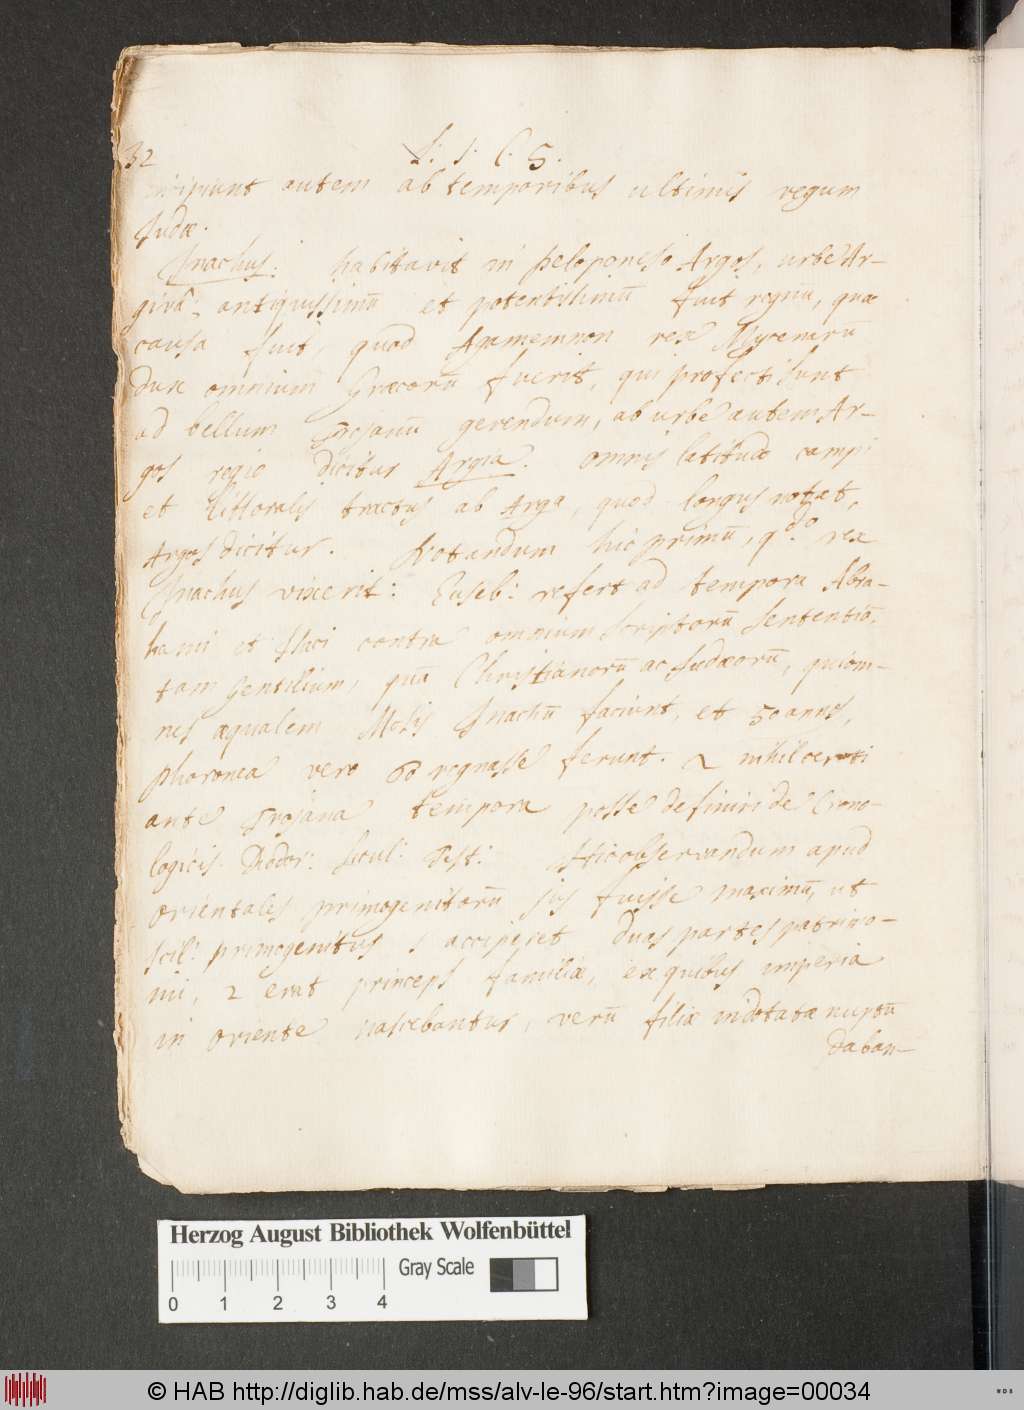 32
L: 1: C. 5.
incipiunt autem ab temporibus ultimis regum
Judæ.
Inachus: habitavit in peloponeso Argos, urbe Ar-
givâ: antiquissimū et potentissimū fuit regnū, quæ
causa fuit, quod Agamemnon rex Mycenarū
dux omnium Græcorū fuerit, qui profecti sunt
ad bellum Trojanū gerendum, ab urbe autem Ar-
gos regio dicitur Argia. omnis latitudo campi
et littoralis tractus ab Arga, quod longus notat,
Argos dicitur. Notandum hic primū, qdo. rex
Inachus vixerit: Euseb: refert ad tempora Abra-
hami et Isaci contra omnium scriptorū sententiā,
tam Gentilium, quā Christianorū ac Judæorū, qui om-
nes æqualem Mosis Inachū faciunt, et 50 annos,
phoronea vero 60 regnasse ferunt. 2 nihil certi
ante Trojana tempora posse definiri de Crono-
logicis. Diodor: Sicul: test: Hic observandum apud
orientales primogenitorū jus fuisse maximū, ut
scil: primogenitus 1 acciperet duas partes patrimo-
nii, 2 erat princeps familiæ, ex quibus imperia
in oriente nascebantur, verū filiæ indotatæ nuptū
daban-
Herzog August Bibliothek Wolfenbüttel
Gray Scale
0 1 2 3 4
© HAB http://diglib.hab.de/mss/alv-le-96/start.htm?image=00034